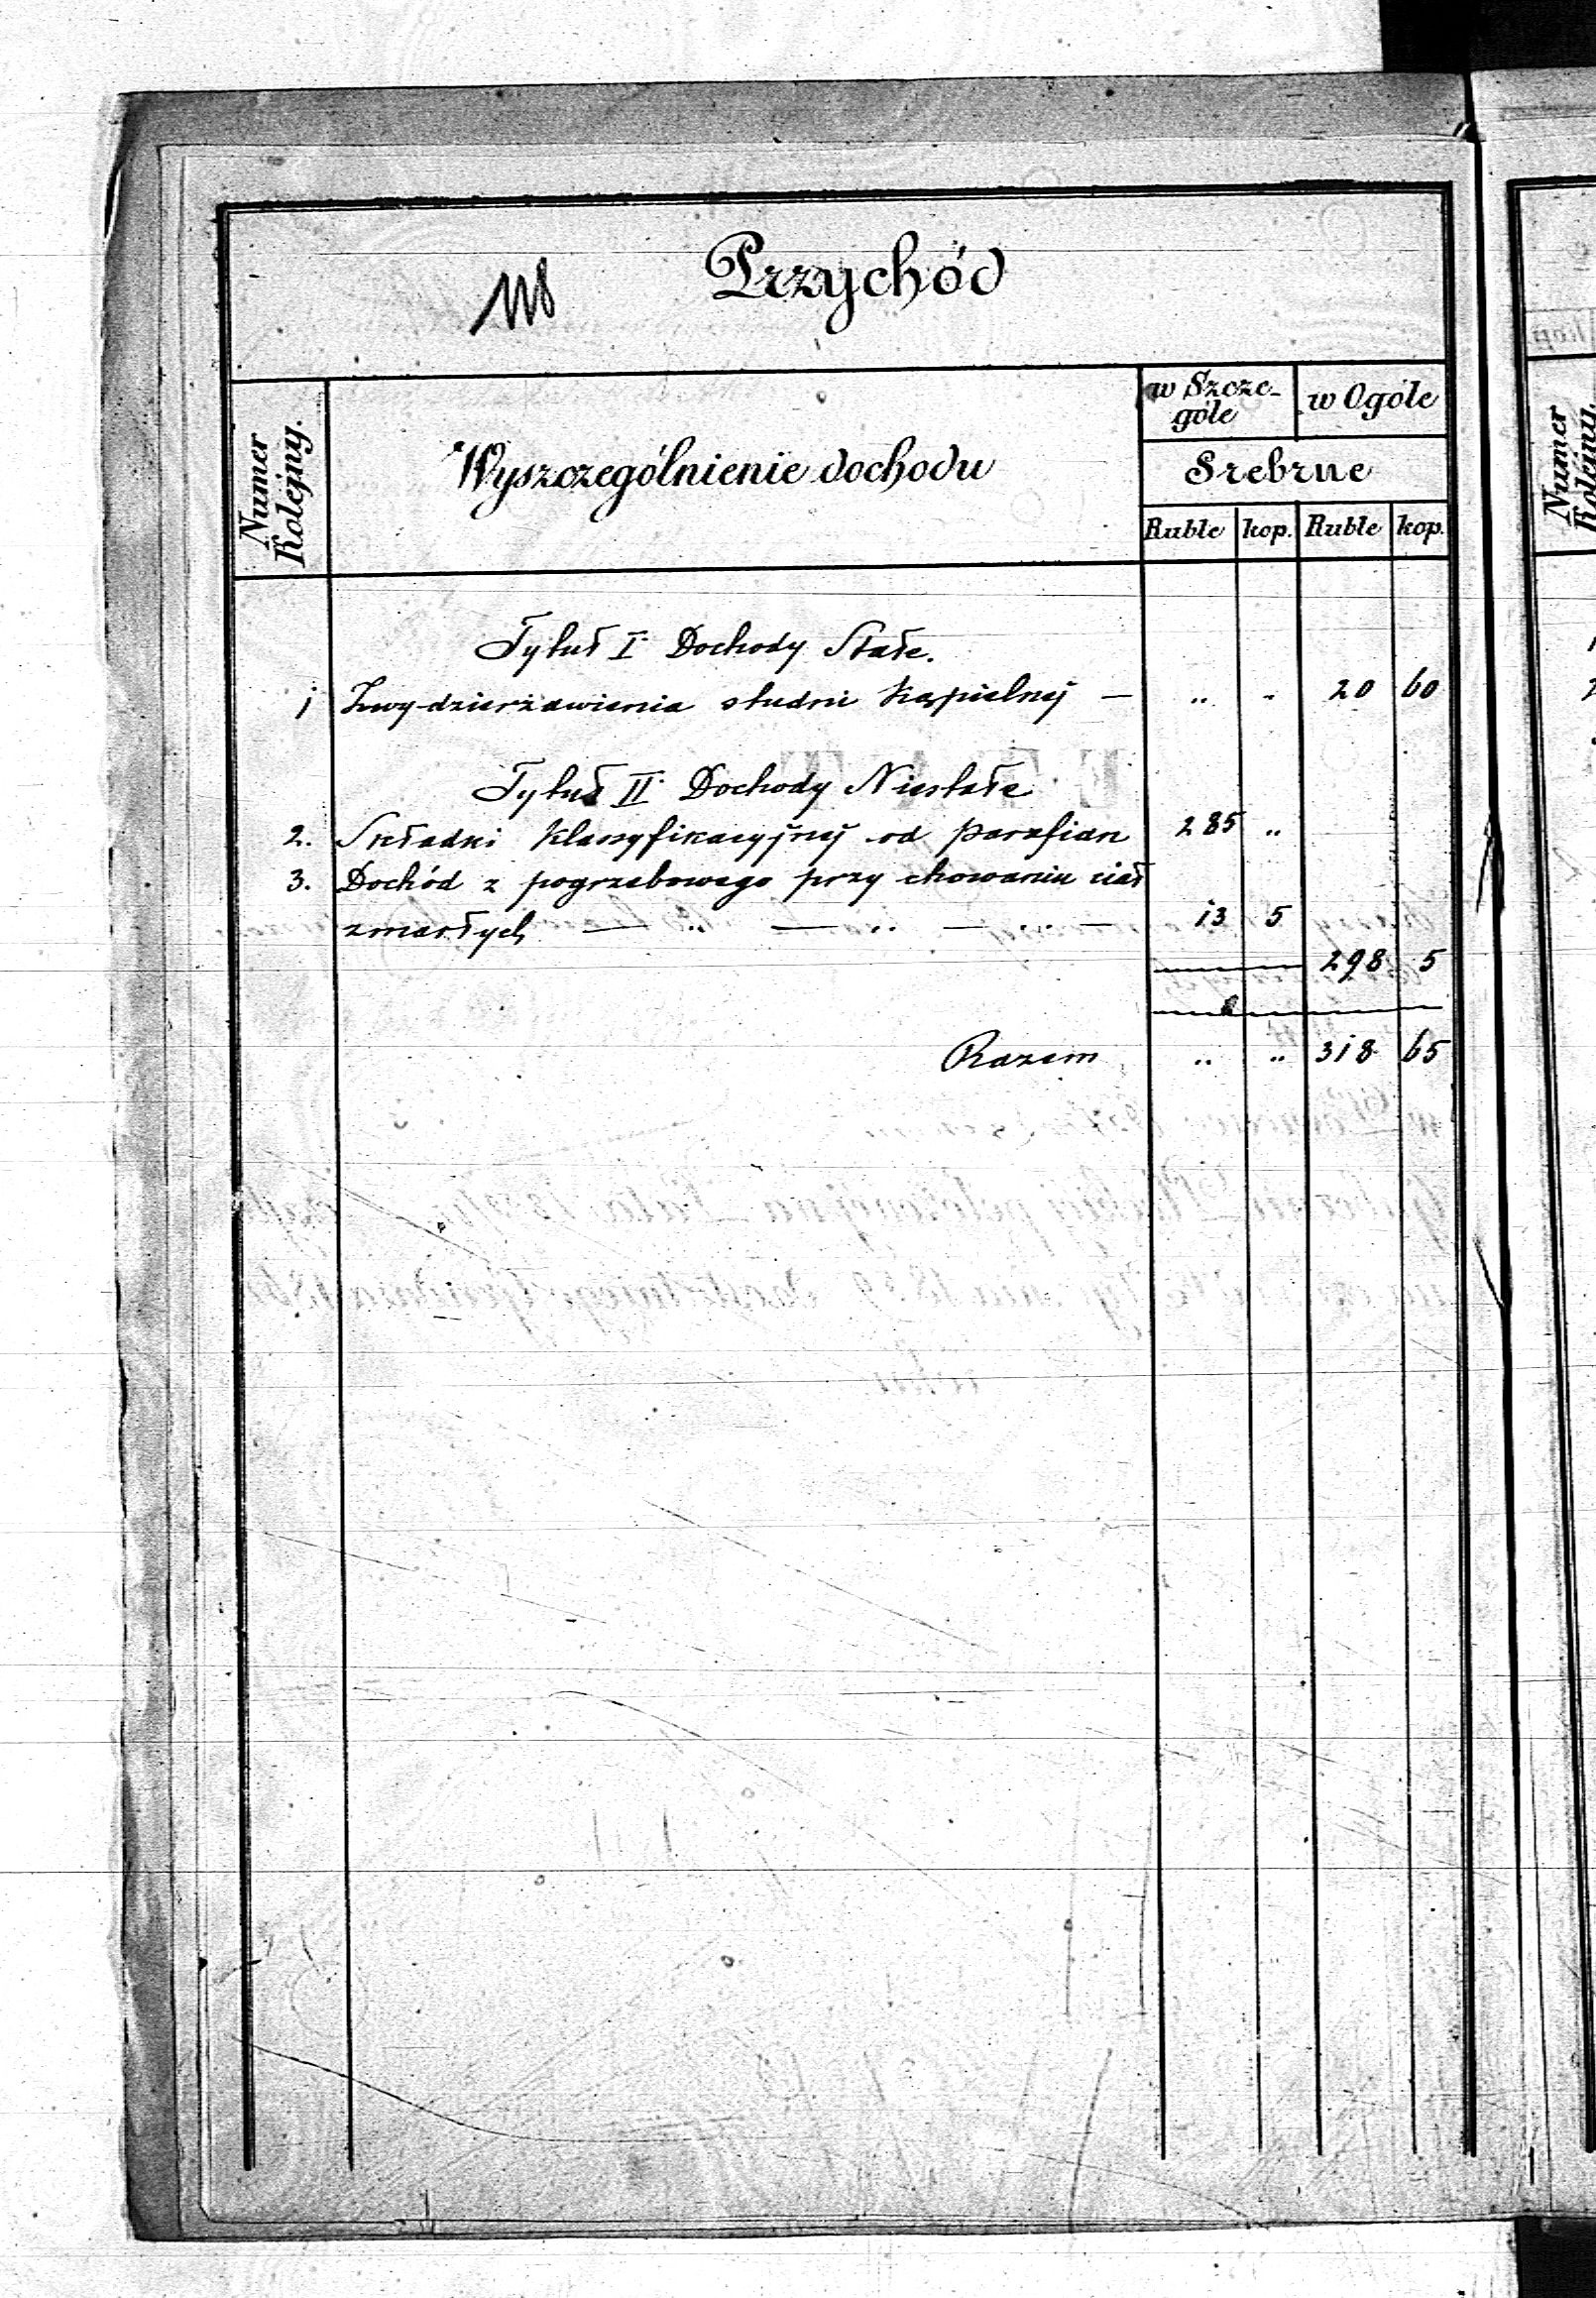 118 Przychód
Numer Kolejny.
Wyszczególnienie dochodu
w Szczególe
w Ogóle
Srebrne
Ruble kop. Ruble kop.
Tytuł I Dochody Stałe.
1 Zwydzierżawienia studni Kąpielnej — „ „ 20 60
Tytuł II Dochody Niestałe
2. Składki Klassyfikacyjnej od Parafian 285 „
3. Dochód z pogrzebowego przy chowaniu ciał
zmarłych — „ — „ — „ — 13 5
298 5
Razem „ „ 318 65
Numer Kolejny.